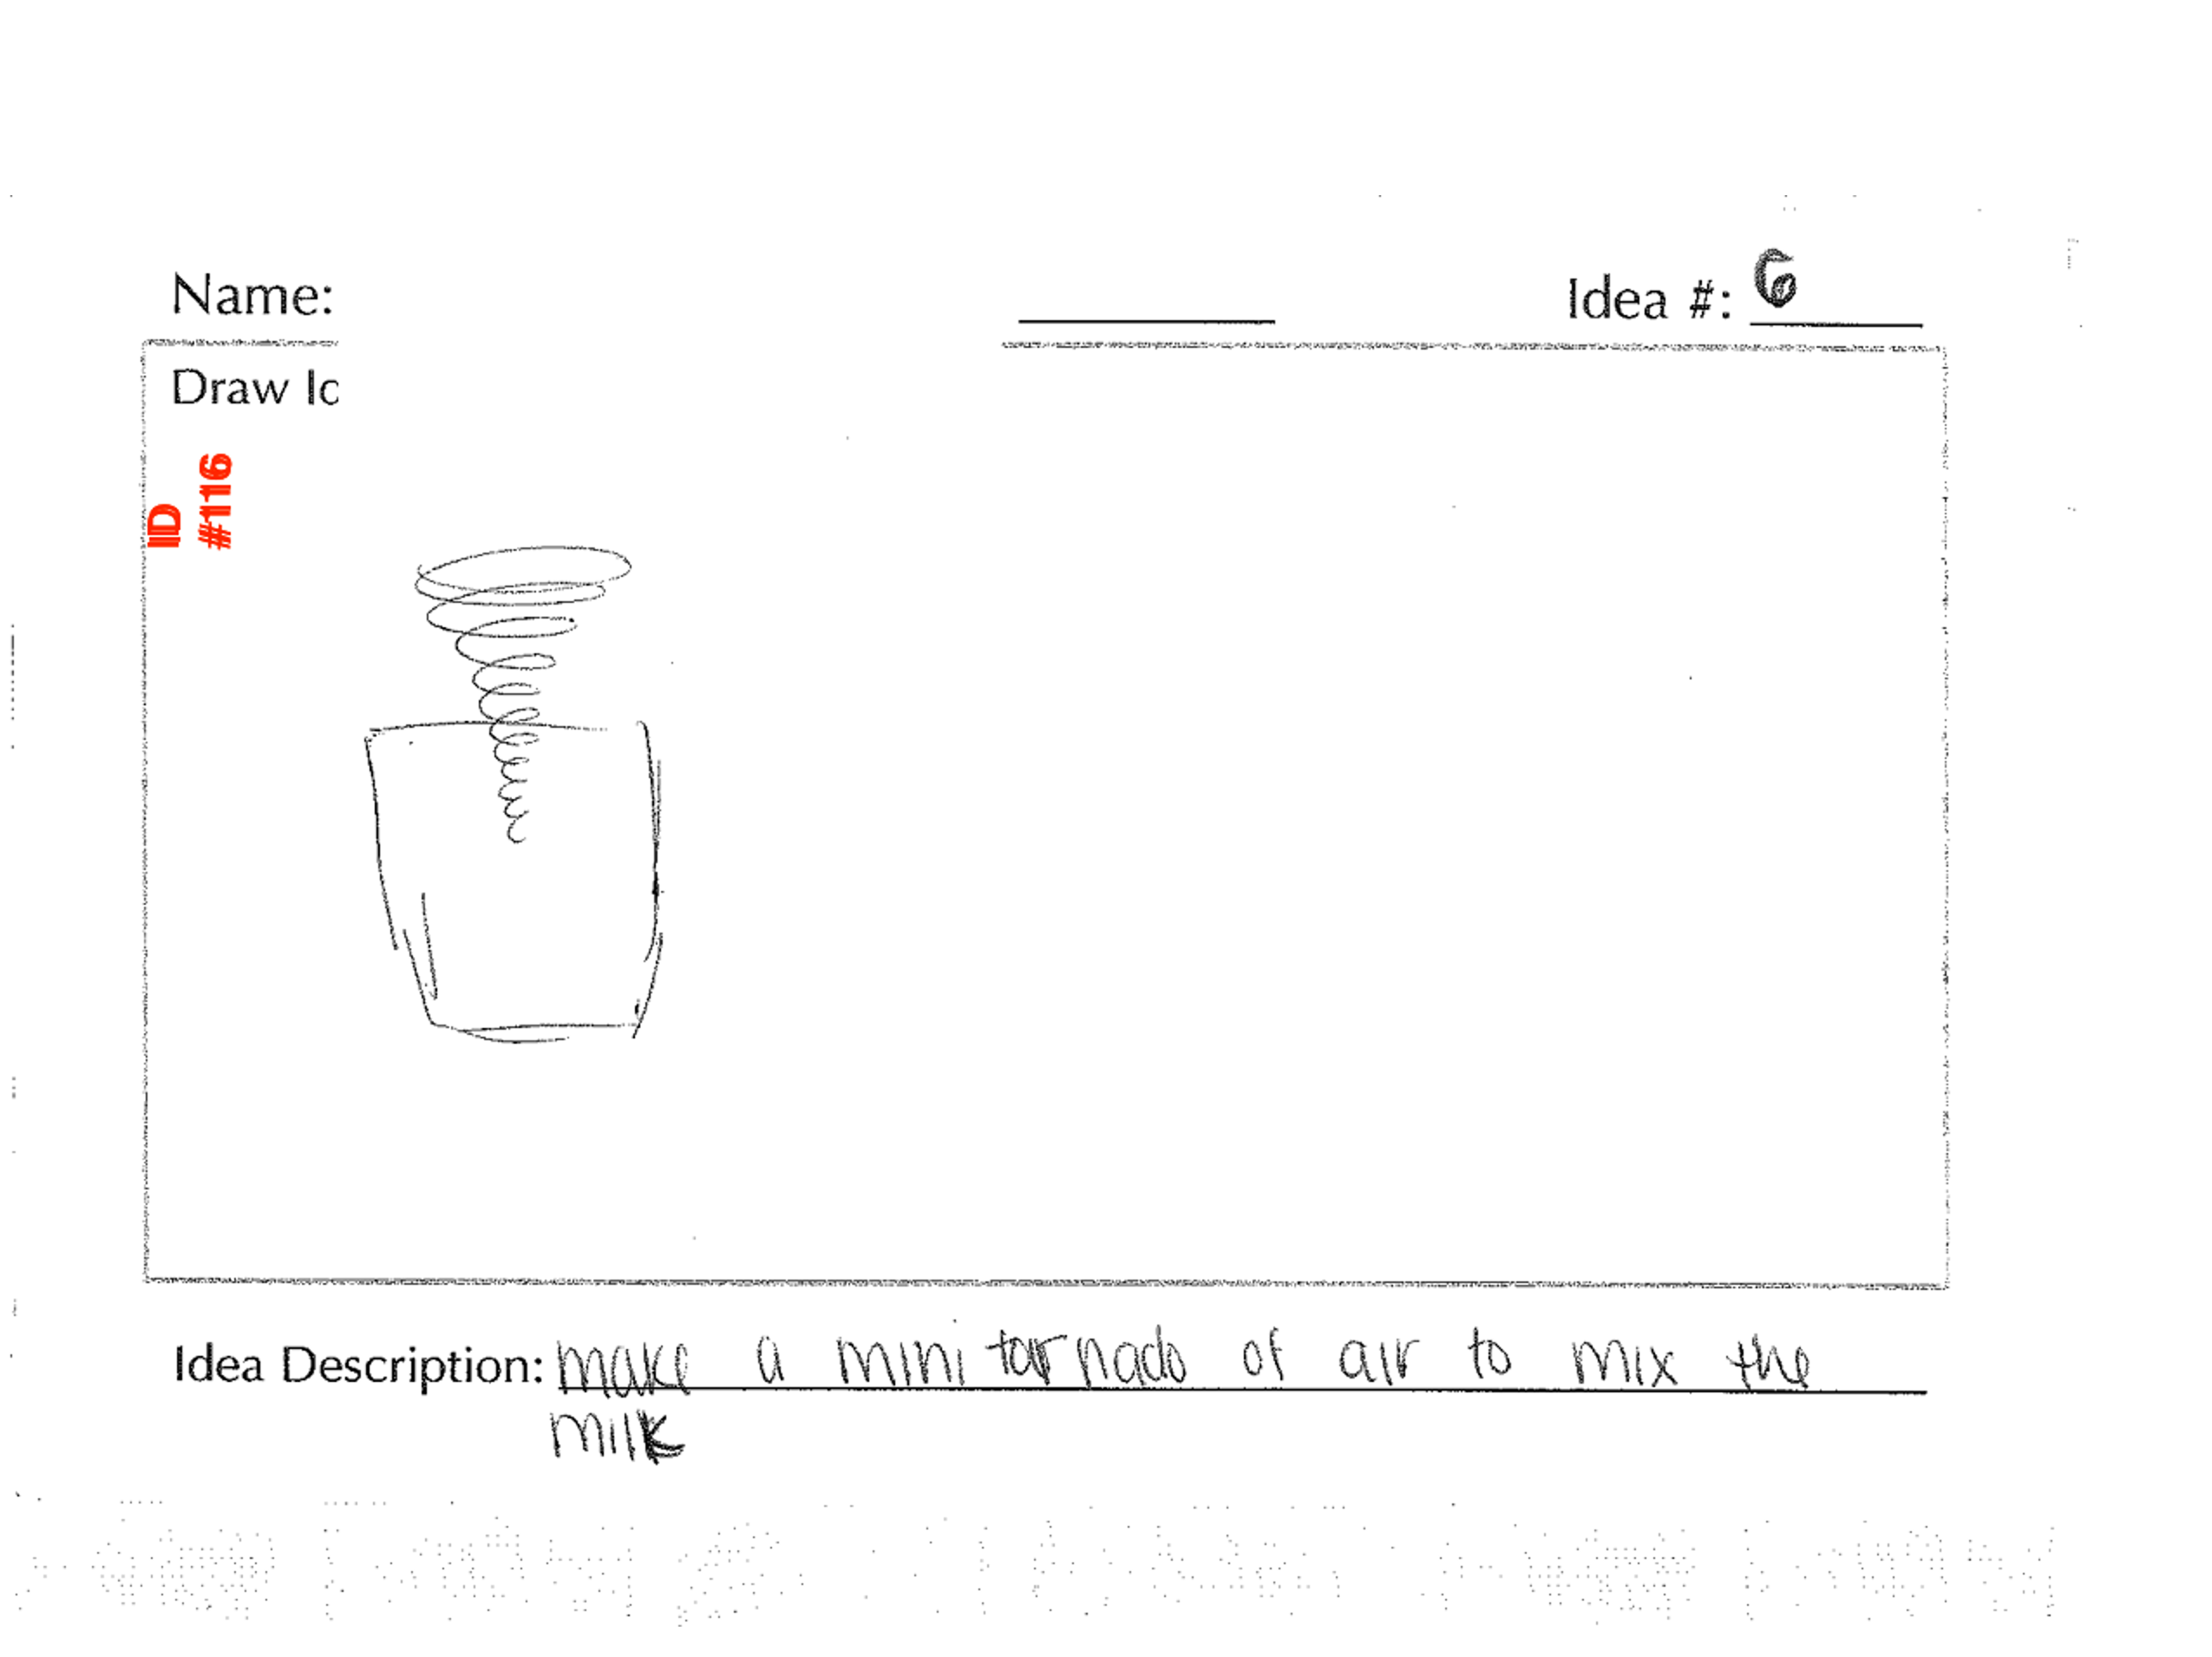 Name:
Idea #: 6
Draw Id
ID
#116
Idea Description: make a mini tornado of air to mix the
milk